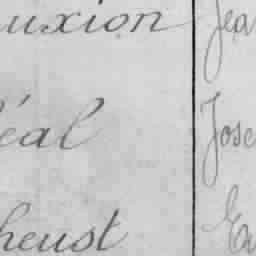 uxion Jea
éal Jose
heust Eu